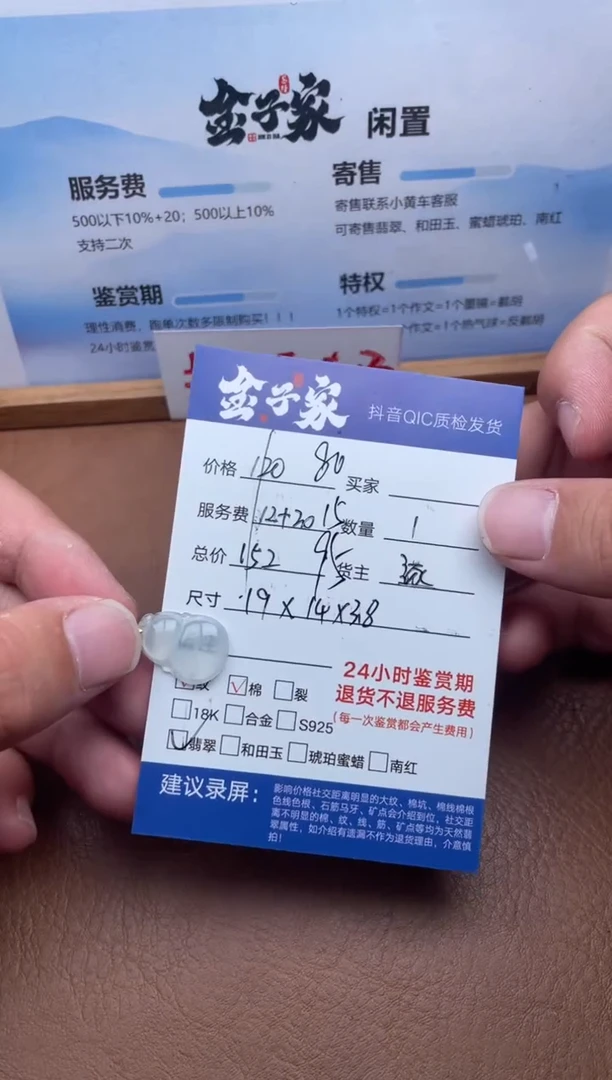 金子家 闲置
服务费
500以下10%+20；500以上10%
支持二次
寄售
寄售联系小黄车客服
可寄售翡翠、和田玉、蜜蜡琥珀、南红
鉴赏期
理性消费，跑单次数多限制购买！！！
24小时鉴赏
特权
1个特权=1个作文=1个墨镜=翻胡
个作文=1个热气球=反翻胡
金子家 抖音QIC质检发货
价格 120 80 买家
服务费 12+20 15 数量 1
总价 152 95 货主
尺寸 19×14×3.8
纹 棉 裂
18K 合金 S925
翡翠 和田玉 琥珀蜜蜡 南红
24小时鉴赏期
退货不退服务费
(每一次鉴赏都会产生费用)
建议录屏：
影响价格社交距离明显的大纹、棉坑、棉线棉根
色线色根、石筋马牙，矿点会介绍到位，社交距
离不明显的棉、纹、线、筋、矿点等均为天然翡
翠属性，如介绍有遗漏不作为退货理由，介意慎
拍！